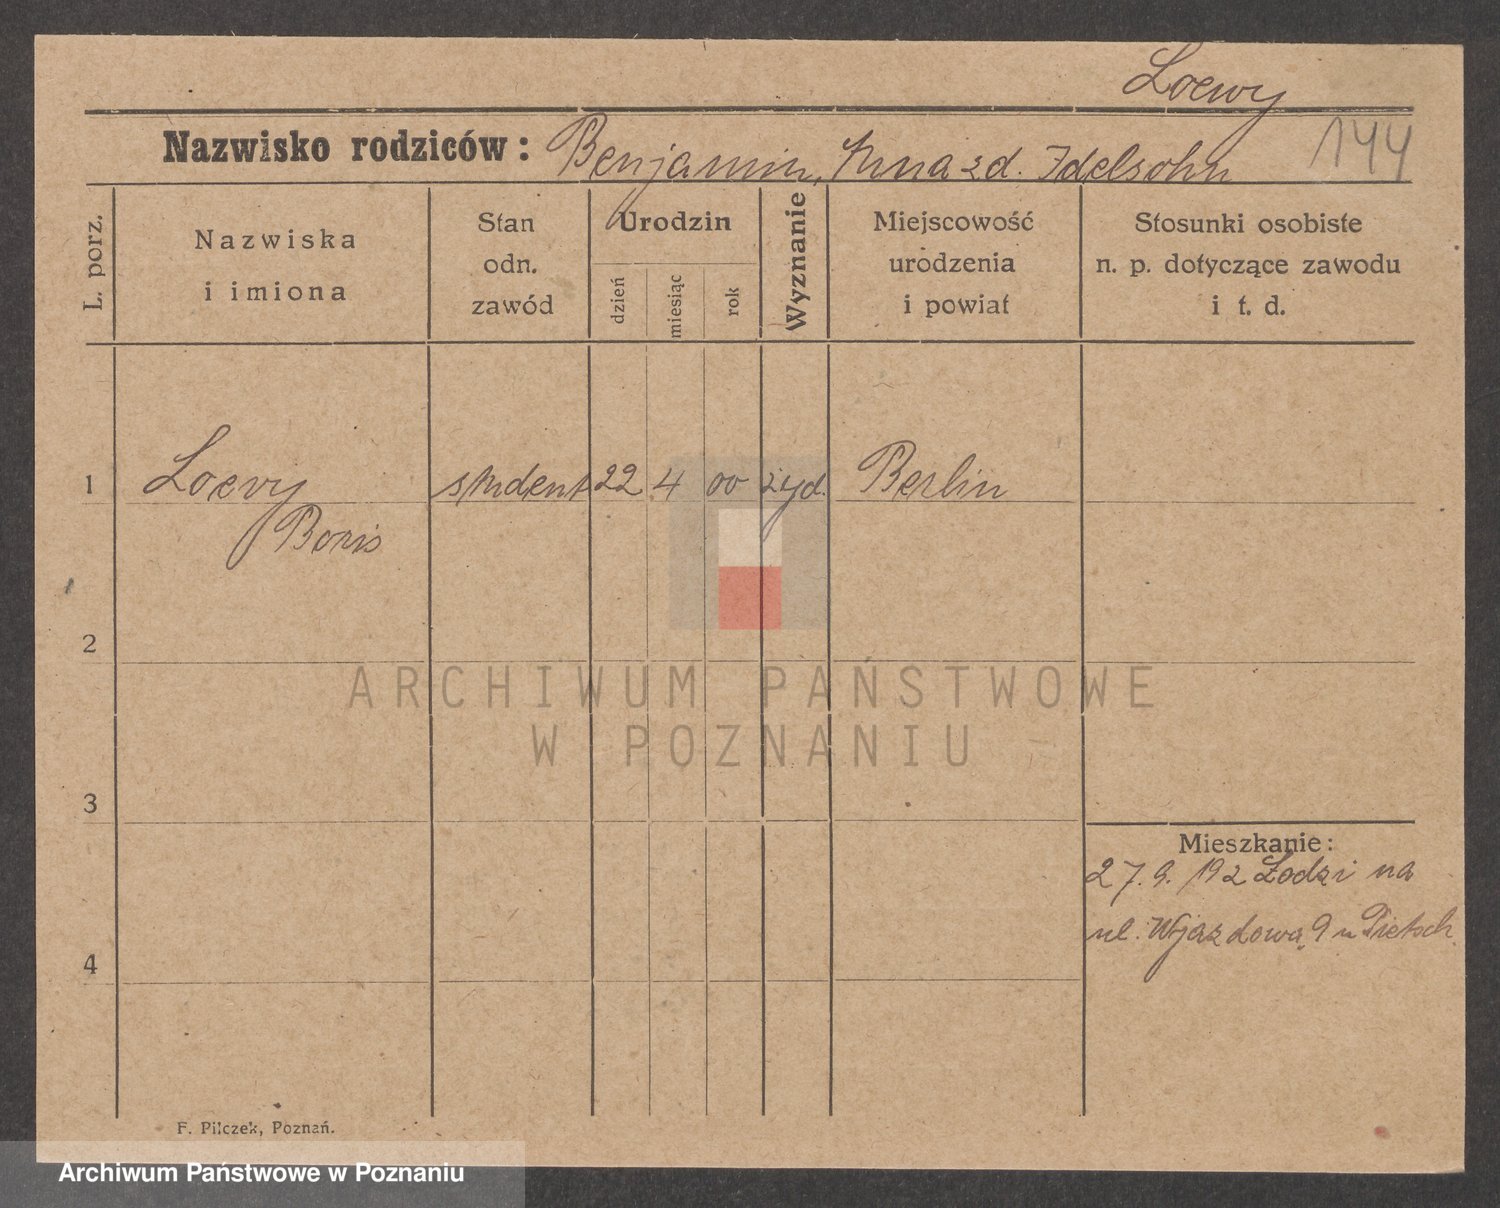 Loewy
Nazwisko rodziców: Benjamin, Anna zd. Idelsohn 144
L. porz.
Nazwiska
i imiona
Stan
odn.
zawód
Urodzin
dzień
miesiąc
rok
Wyznanie
Miejscowość
urodzenia
i powiat
Stosunki osobiste
n. p. dotyczące zawodu
i t. d.
1 Loevy student 22 4 00 żyd. Berlin
Boris
2
ARCHIWUM PAŃSTWOWE
W POZNANIU
3
Mieszkanie:
27.9. 192 Łodzi na
ul. Wjazdowa 9 u
4
F. Pilczek, Poznań.
Archiwum Państwowe w Poznaniu